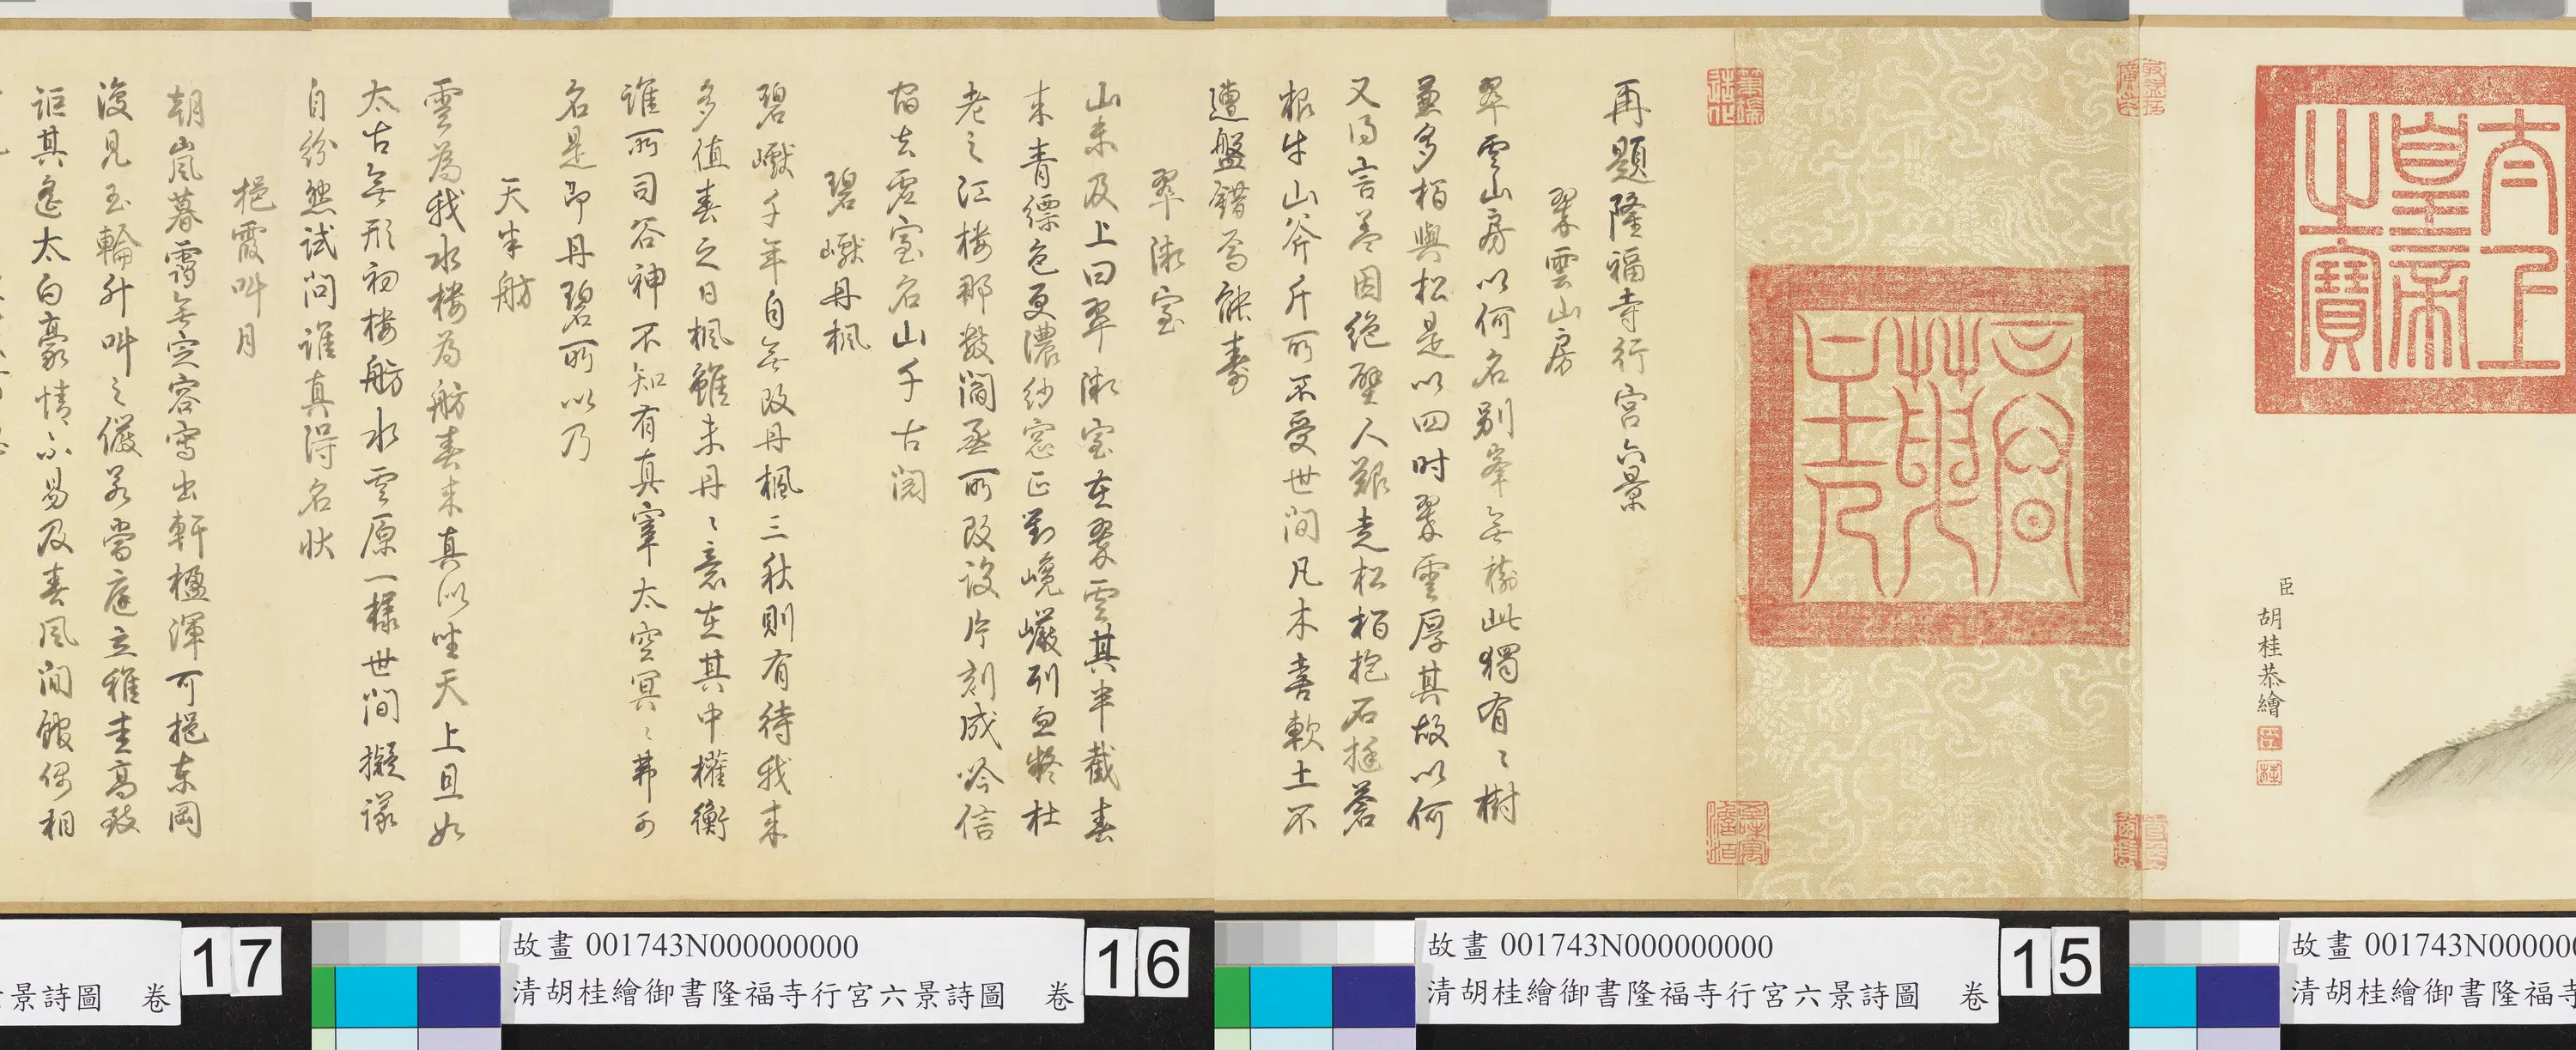 太上
皇帝
之寶
臣胡桂恭繪
再題隆福寺行宮六景
翠雲山房
翠雲山房以何名别峯無樹此獨有〻樹
兼多栢與松是以四时翠雲厚其故以何
又得言葢因絶壁人艱走松栢抱石挺蒼
根生山斧斤所不受世間凡木喜軟土不
遭盤錯焉能壽
翠微室
山未及上曰翠微室在翠雲其半截春
来青縹色更濃紗窓正對巉巖列杜
老之江樓那數閻丞所改設片刻成吟信
宿去虛室名山千古閱
碧巘丹楓
碧巘千年自無改丹楓三秋則有待我来
多值春之日楓雖未丹〻意在其中權衡
誰所司谷神不知有真宰太空冥〻茀可
名是即丹碧所以乃
天半舫
雲為我水樓為舫春来真似坐天上且如
太古無形初樓舫水雲原一樣世間擬議
自紛然試問誰真得名狀
挹霞叫月
朝嵐暮靄無定容寫出軒楹渾可挹東岡
復見玉輪升叫之儼若當庭立稚圭高致
詎其遙太白豪情不易及春風間館偶相
故畫 001743N00000
清胡桂繪御書隆福寺
15
故畫 001743N000000000
清胡桂繪御書隆福寺行宮六景詩圖 卷
16
故畫 001743N000000000
清胡桂繪御書隆福寺行宮六景詩圖 卷
17
景詩圖 卷